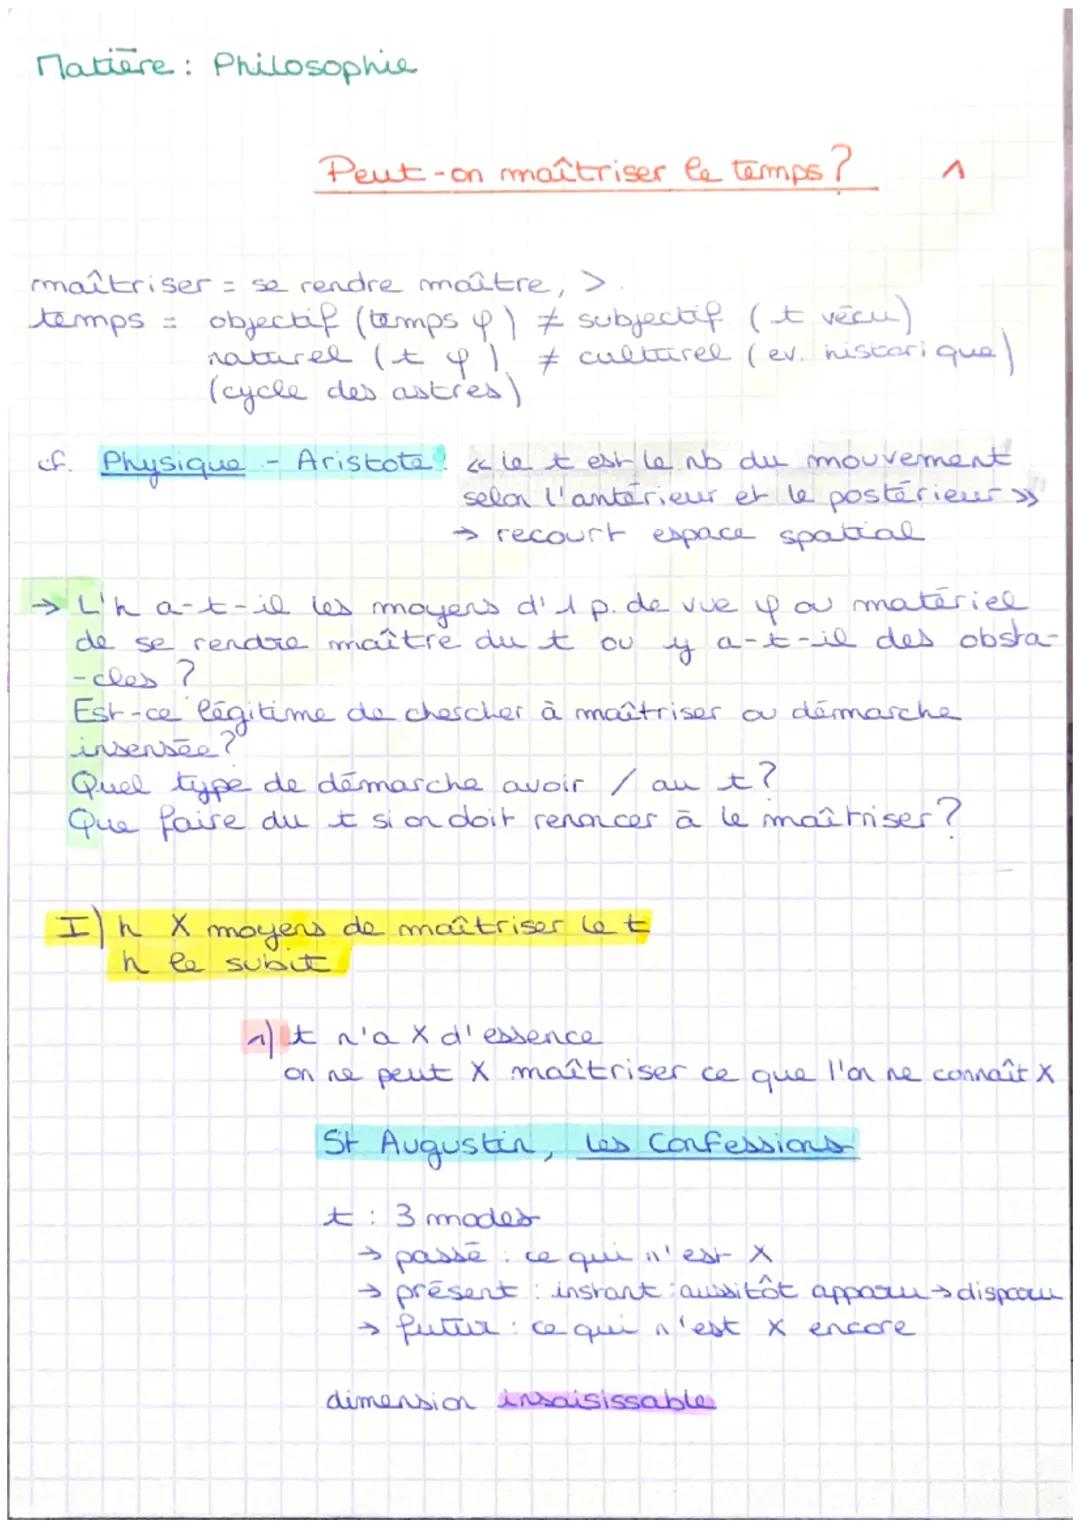 Matière : Philosophie
Peut-on maîtriser le temps ? 1
maîtriser = se rendre maître, >.
temps = objectif (temps φ) ≠ subjectif (t vécu)
naturel (t φ) ≠ culturel (ev. historique)
(cycle des astres)
cf. Physique - Aristote : « le t est le nb du mouvement
selon l'antérieur et le postérieur »
→ recourt espace spatial
→ L'h a-t-il les moyens d'1 p. de vue φ ou matériel
de se rendre maître du t ou y a-t-il des obsta-
-cles ?
Est-ce légitime de chercher à maîtriser ou démarche
insensée ?
Quel type de démarche avoir / au t ?
Que faire du t si on doit renoncer à le maîtriser ?
I) h X moyens de maîtriser le t
h le subit
1) t n'a X d'essence
on ne peut X maîtriser ce que l'on ne connaît X
St Augustin, Les Confessions
t : 3 modes
→ passé : ce qui n'est X
→ présent : instant : aussitôt apparu → disparu
→ futur : ce qui n'est X encore
dimension insaisissable